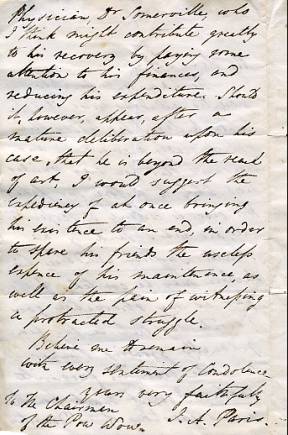 Physician, Dr Somerville, who
I think might contribute greatly
to his recovery by paying some
attention to his finances, and
reducing his expenditure. Should
it, however, appear, after a
mature deliberation upon his
case, that he is beyond the reach
of art, I would suggest the
expediency of at once bringing
his existence to an end, in order
to spare his friends the useless
expence of his maintenance, as
well as the pain of witnessing
a protracted struggle.
Believe me to remain
with every sentiment of Condolence
yours very faithfully
J. A. Paris.
To The Chairman
of the Pow Wow.